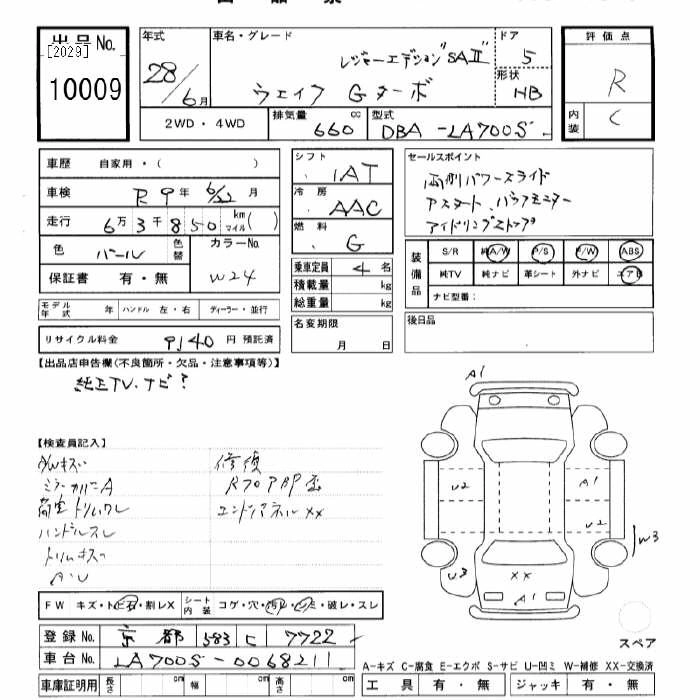 出品No.
[2029]
10009
年式
28/6月
車名・グレード
レジャーエディション SAⅡ
ウェイク Gターボ
ドア
5
形状
HB
評価点
R
内装
C
2WD・4WD
排気量
660 cc
型式
DBA-LA700S
車歴 自家用・( )
車検 R9年 6/22月
走行 6万3千850 km マイル( )
色 パール
色替
カラーNo.
W24
保証書 有・無
シフト
IAT
冷房
AAC
燃料
G
乗車定員 4名
積載量 kg
総重量 kg
名変期限
月 日
セールスポイント
両側パワースライド
アイドリングストップ
装備品
S/R 純A/W P/S P/W ABS
純TV 純ナビ 革シート 外ナビ エアB
ナビ型番:
モデル年式 年 ハンドル 左・右 ディーラー・並行
リサイクル料金 9140 円 預託済
後日品
【出品店申告欄(不良箇所・欠品・注意事項等)】
純正TV.ナビ?
【検査員記入】
修復
エンドパネルXX
ハンドルスレ
A.U
A1
U2
A1
U2
W3
U3
XX
A1
FW キズ・トビ石・割レX
シート内装 コゲ・穴・汚レ・シミ・破レ・スレ
スペア
登録No. 京都 583 に 7722
車台No. LA700S-0068211
A-キズ C-腐食 E-エクボ S-サビ U-凹ミ W-補修 XX-交換済
車庫証明用 長さ cm 幅 cm 高さ cm
工具 有・無 ジャッキ 有・無